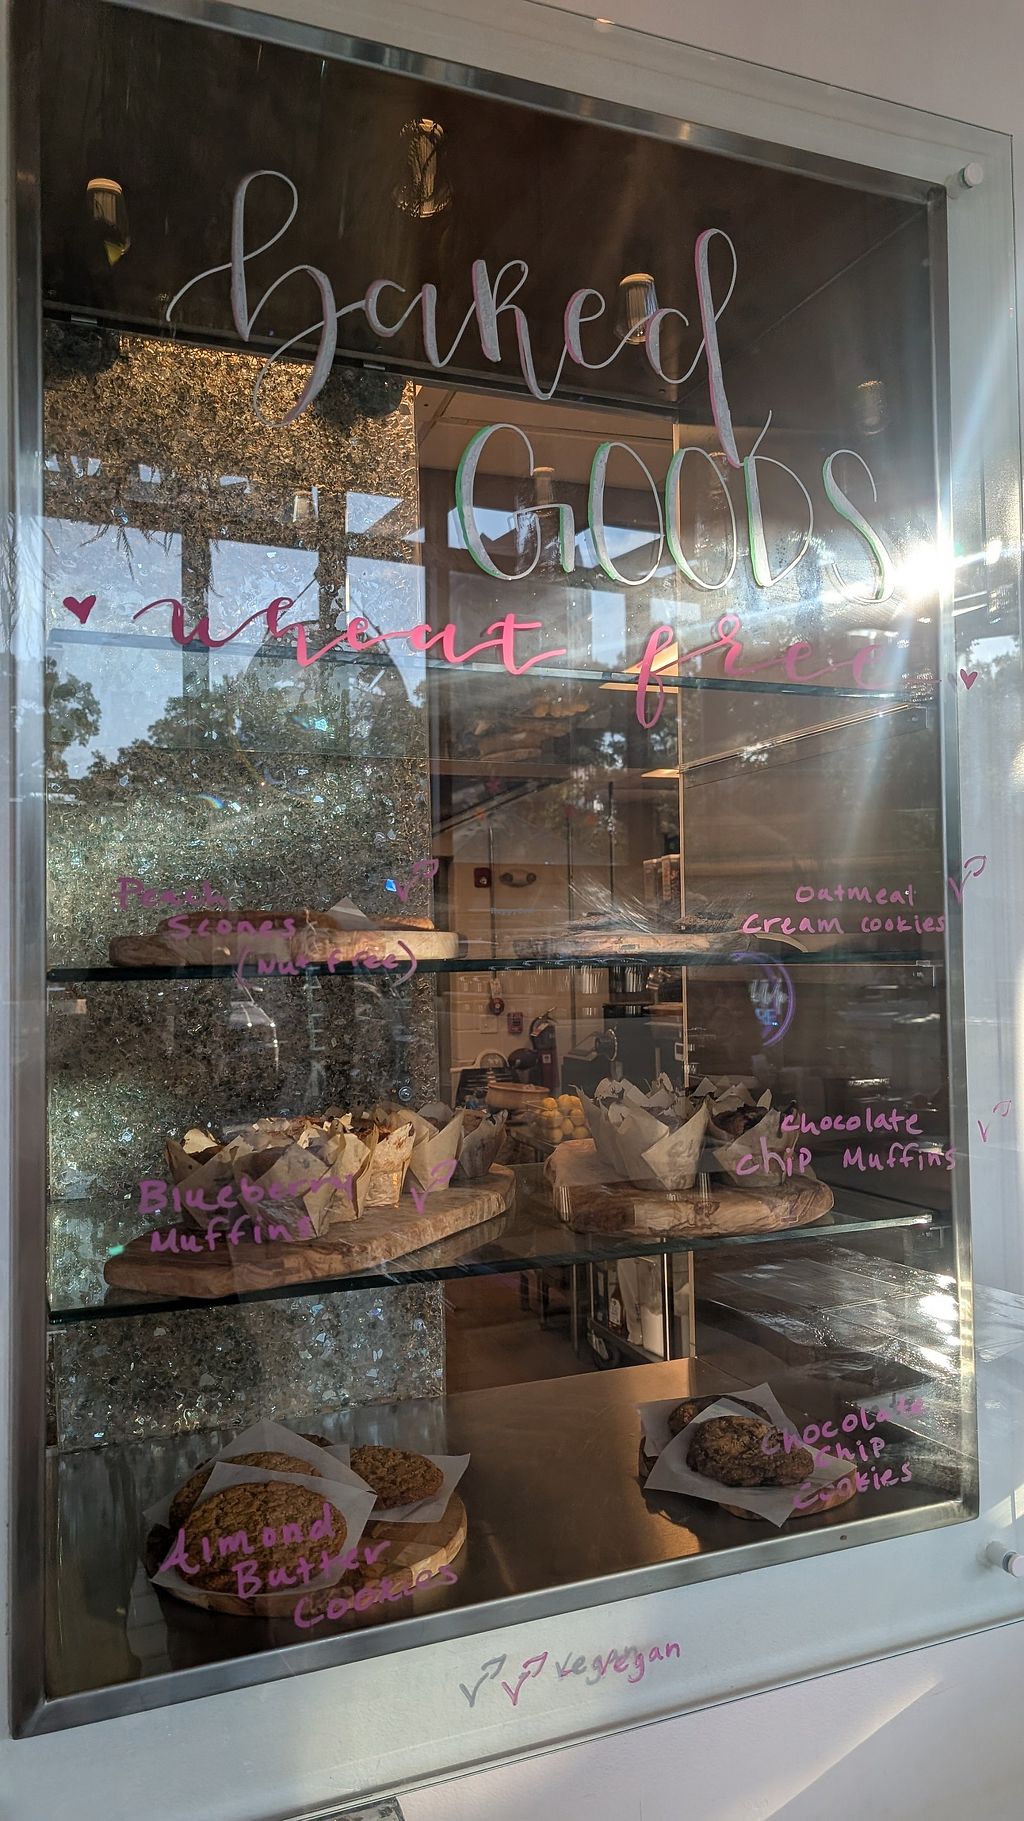 baked
GOODS
wheat free
Peach
Scones
(Nut free)
Oatmeal
Cream cookies
Blueberry
Muffins
Chocolate
chip Muffins
Almond
Butter
Cookies
Chocolate
Chip
Cookies
vegan